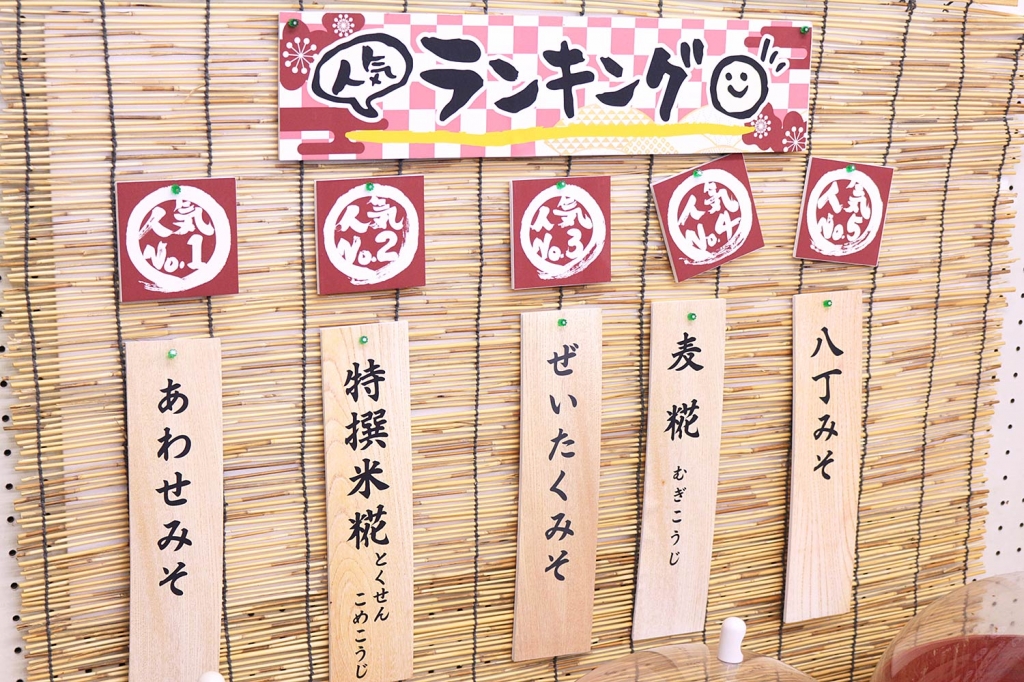 人気ランキング
人気No.1
あわせみそ
人気No.2
特撰米糀
とくせん
こめこうじ
人気No.3
ぜいたくみそ
人気No.4
麦糀
むぎこうじ
人気No.5
八丁みそ